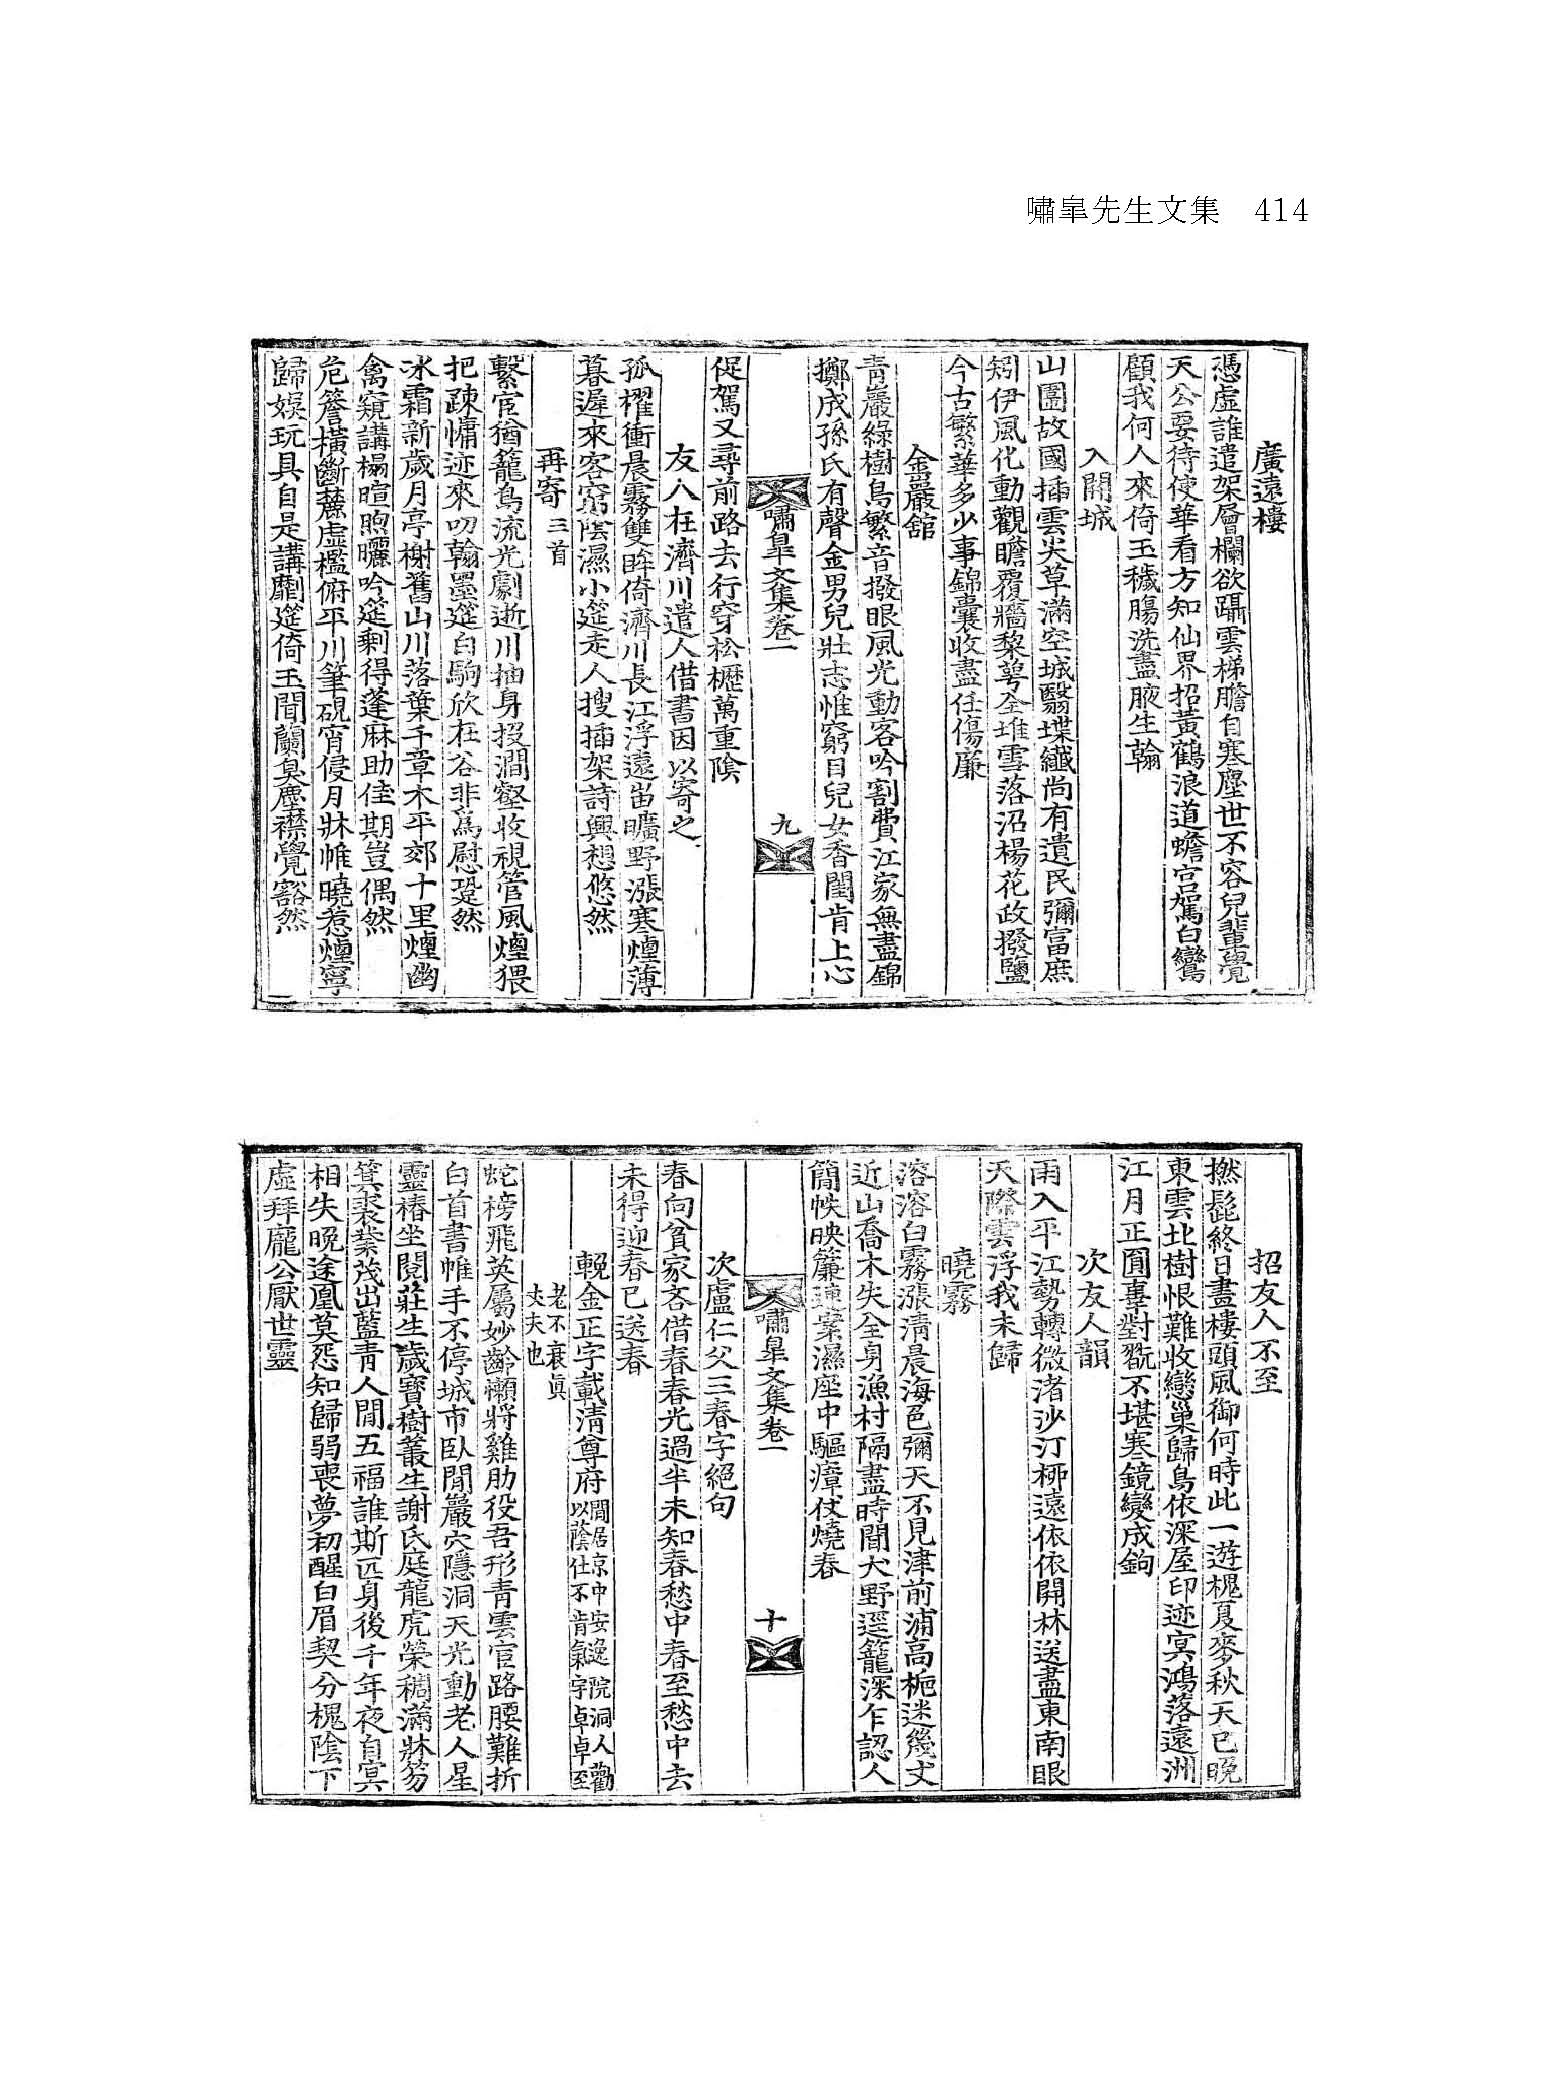 嘯皐先生文集 414
廣遠樓
憑虛誰遣架層欄欲躡雲梯膽自寒塵世不容兒輩覺
天公要待使華看方知仙界招黃鶴浪道蟾宮駕白鸞
顧我何人來倚玉穢膓洗盡腋生翰
入開城
山圍故國揷雲尖草滿空城翳堞纖尙有遺民彌富庶
矧伊風化動觀瞻覆牆黎萼全堆雪落沼楊花政撥鹽
今古繁華多少事錦囊收盡任傷廉
金巖舘
靑巖綠樹鳥繁音撥眼風光動客吟割費江家無盡錦
擲成孫氏有聲金男兒壯志惟窮目兒女香閨肯上心
嘯皐文集卷一
九
促駕又尋前路去行穿松櫪萬重陰
友人在濟川遣人借書因以寄之
孤櫂衝晨霧雙眸倚濟川長江浮遠岫曠野漲寒煙薄
暮遲來客窮陰濕小筵走人搜揷架詩興想悠然
再寄 三首
繫官猶籠鳥流光劇逝川抽身投澗壑收視管風煙猥
把疎慵迹來叨翰墨筵白駒欣在谷非爲慰跫然
冰霜新歲月亭榭舊山川落葉千章木平郊十里煙幽
禽窺講榻暄煦曬吟筵剩得蓬麻助佳期豈偶然
危簷橫斷麓虛檻俯平川筆硯宵侵月牀帷曉惹煙寧
歸娛玩具自是講劘筵倚玉聞蘭臭塵襟覺豁然
招友人不至
撚髭終日盡樓頭風御何時此一遊槐夏麥秋天已晚
東雲北樹恨難收戀巢歸鳥依深屋印迹冥鴻落遠洲
江月正圓辜對翫不堪寒鏡變成鉤
次友人韻
雨入平江勢轉微渚沙汀柳遠依依開林送盡東南眼
天際雲浮我未歸
曉霧
溶溶白霧漲淸晨海色彌天不見津前浦高桅迷幾丈
近山喬木失全身漁村隔盡時聞犬野逕籠深乍認人
簡帙映簾連案濕座中驅瘴仗燒春
嘯皐文集卷一
十
次盧仁父三春字絕句
春向貧家吝借春春光過半未知春愁中春至愁中去
未得迎春已送春
輓金正字載淸尊府 閒居京中安逸院洞人勸
以蔭仕不肯氣宇卓卓至
老不衰眞
丈夫也
蛇榜飛英屬妙齡懶將雞肋役吾形靑雲官路腰難折
白首書帷手不停城市臥聞巖穴隱洞天光動老人星
靈椿坐閱莊生歲寶樹叢生謝氏庭龍虎榮稠滿牀笏
箕裘業茂出藍靑人間五福誰斯匹身後千年夜自冥
相失晚途凰莫怨知歸弱喪夢初醒白眉契分槐陰下
虛拜龐公厭世靈